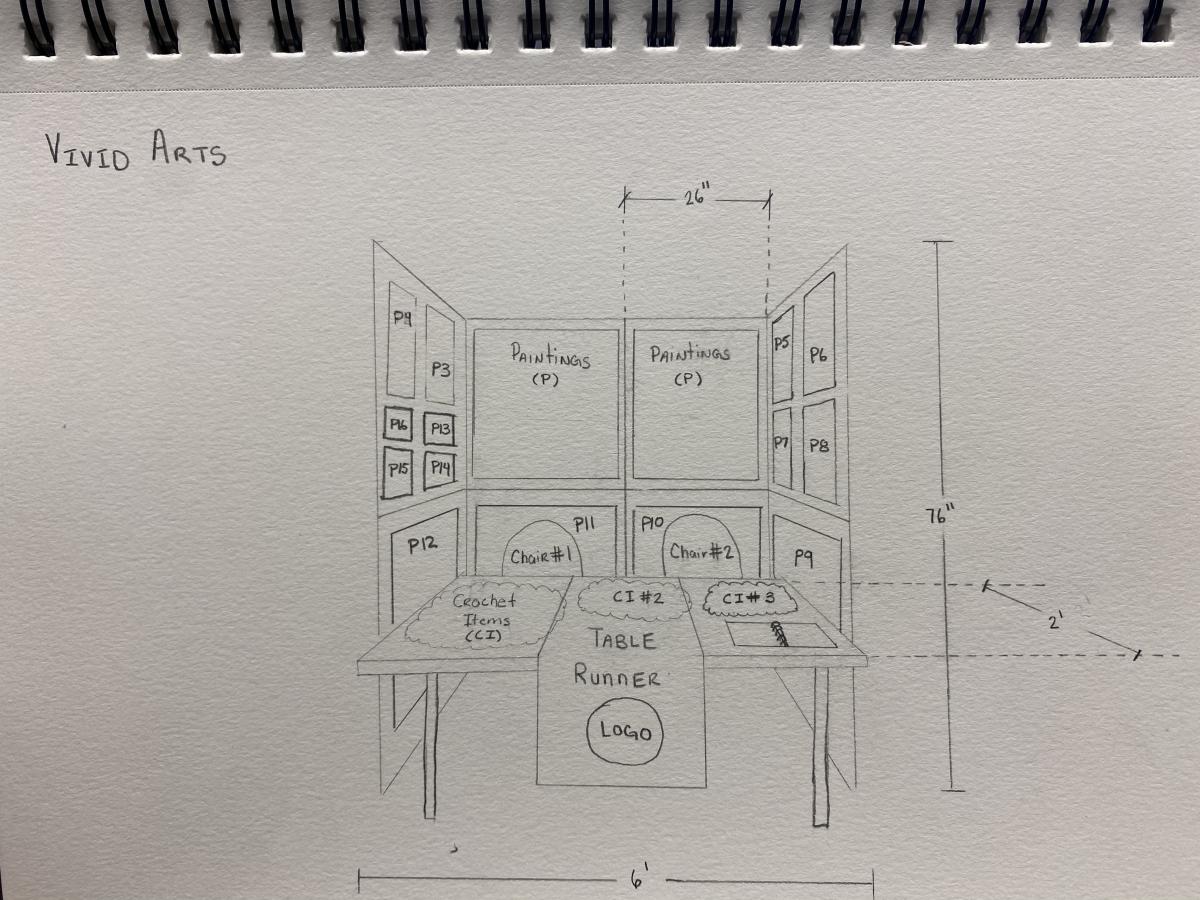 VIVID ARTS
26"
P4
P3
PAINTINGS
(P)
PAINTINGS
(P)
P5
P6
P16
P13
P15
P14
P7
P8
76"
P12
P11
Chair#1
P10
Chair#2
P9
Crochet
Items
(CI)
CI #2
CI# 3
2'
TABLE
RunnER
LOGO
6'